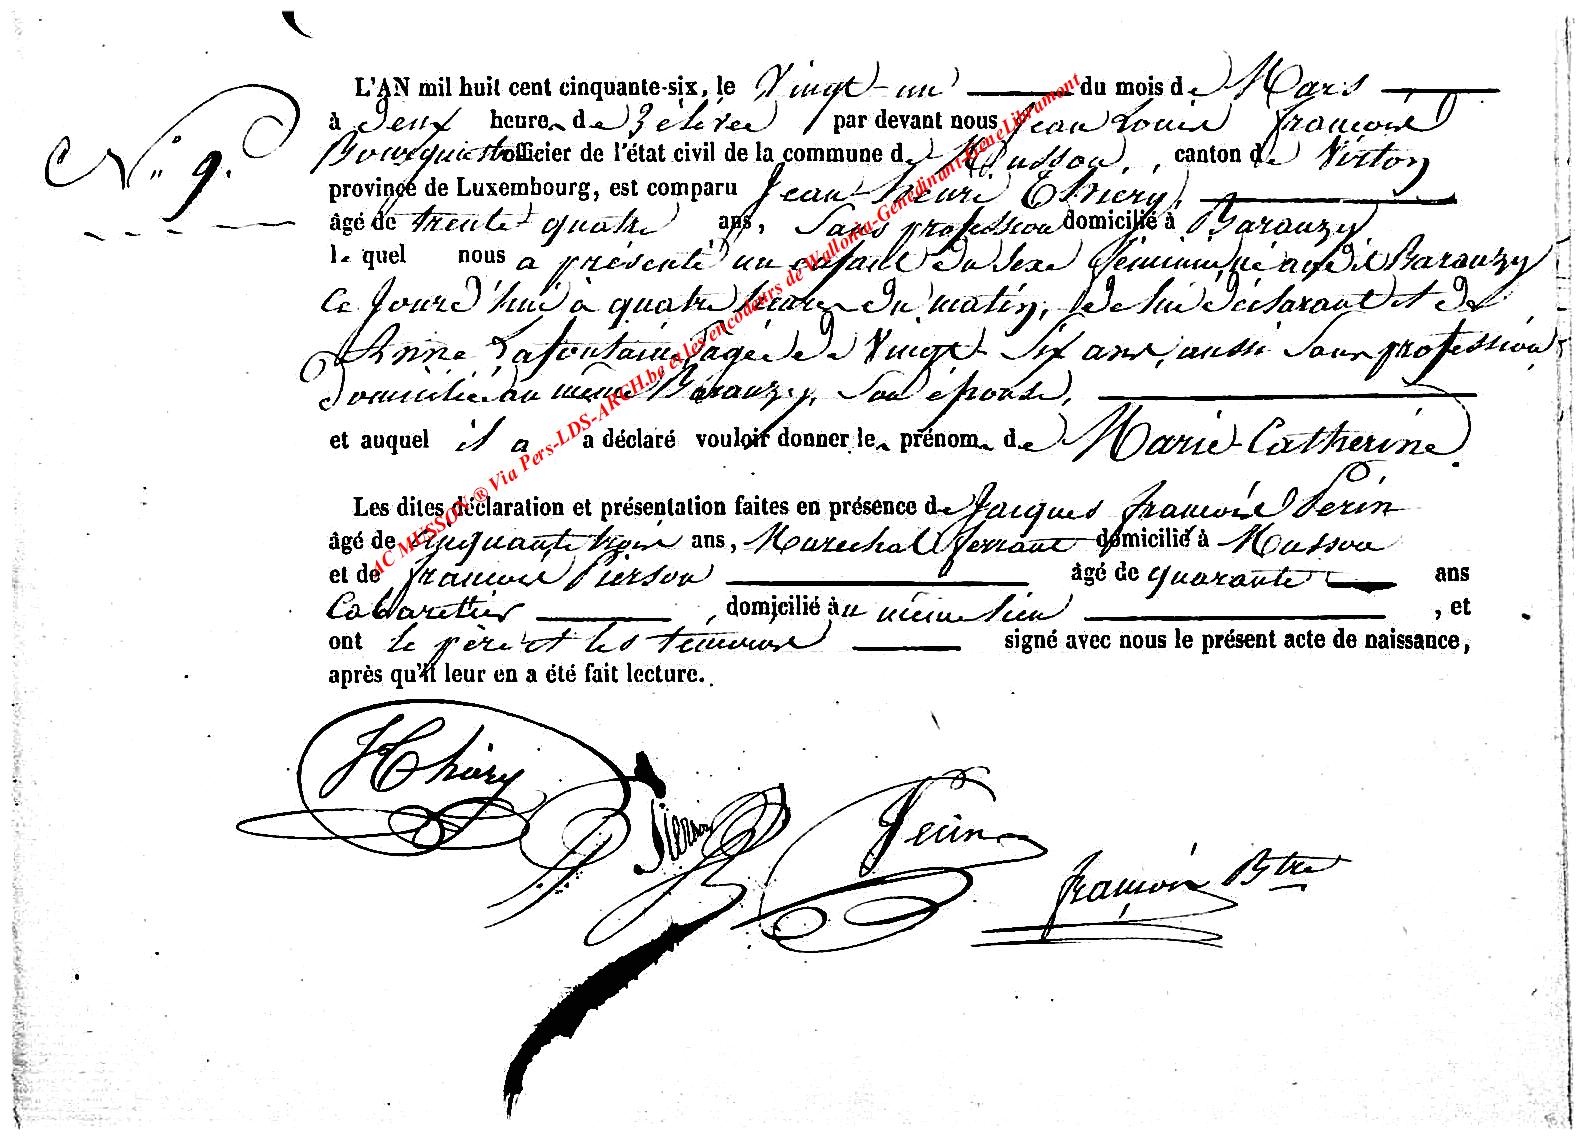 L'AN mil huit cent cinquante-six, le Vingt-un du mois de Mars
à deux heures de relevée par devant nous Jean Louis François
N.° 9. officier de l'état civil de la commune de Musson, canton de Virton
province de Luxembourg, est comparu Jean-Henri Thiéry,
âgé de trente-quatre ans, Sans profession domicilié à Baranzy
lequel nous a présenté un enfant du sexe féminin né audit Baranzy
ce jourd'hui à quatre heures du matin, de lui déclarant et de
Anne Lafontaine, âgée de Vingt-Six ans, aussi Sans profession,
domiciliée au même Baranzy, Son épouse,
et auquel il a a déclaré vouloir donner les prénoms de Marie-Catherine.
Les dites déclaration et présentation faites en présence de Jacques François Perin
âgé de cinquante trois ans, Maréchal ferrant domicilié à Musson
et de François Pierson âgé de quarante ans
Cabaretier, domicilié au même lieu, et
ont le père et les témoins signé avec nous le présent acte de naissance,
après qu'il leur en a été fait lecture.
AC MUSSON ® Via Pers-LDS-ARCH.be et les encodeurs de Wallonia-Genedinant-IreneLibramont
JHThiéry
Pierson
Perin
François Btre